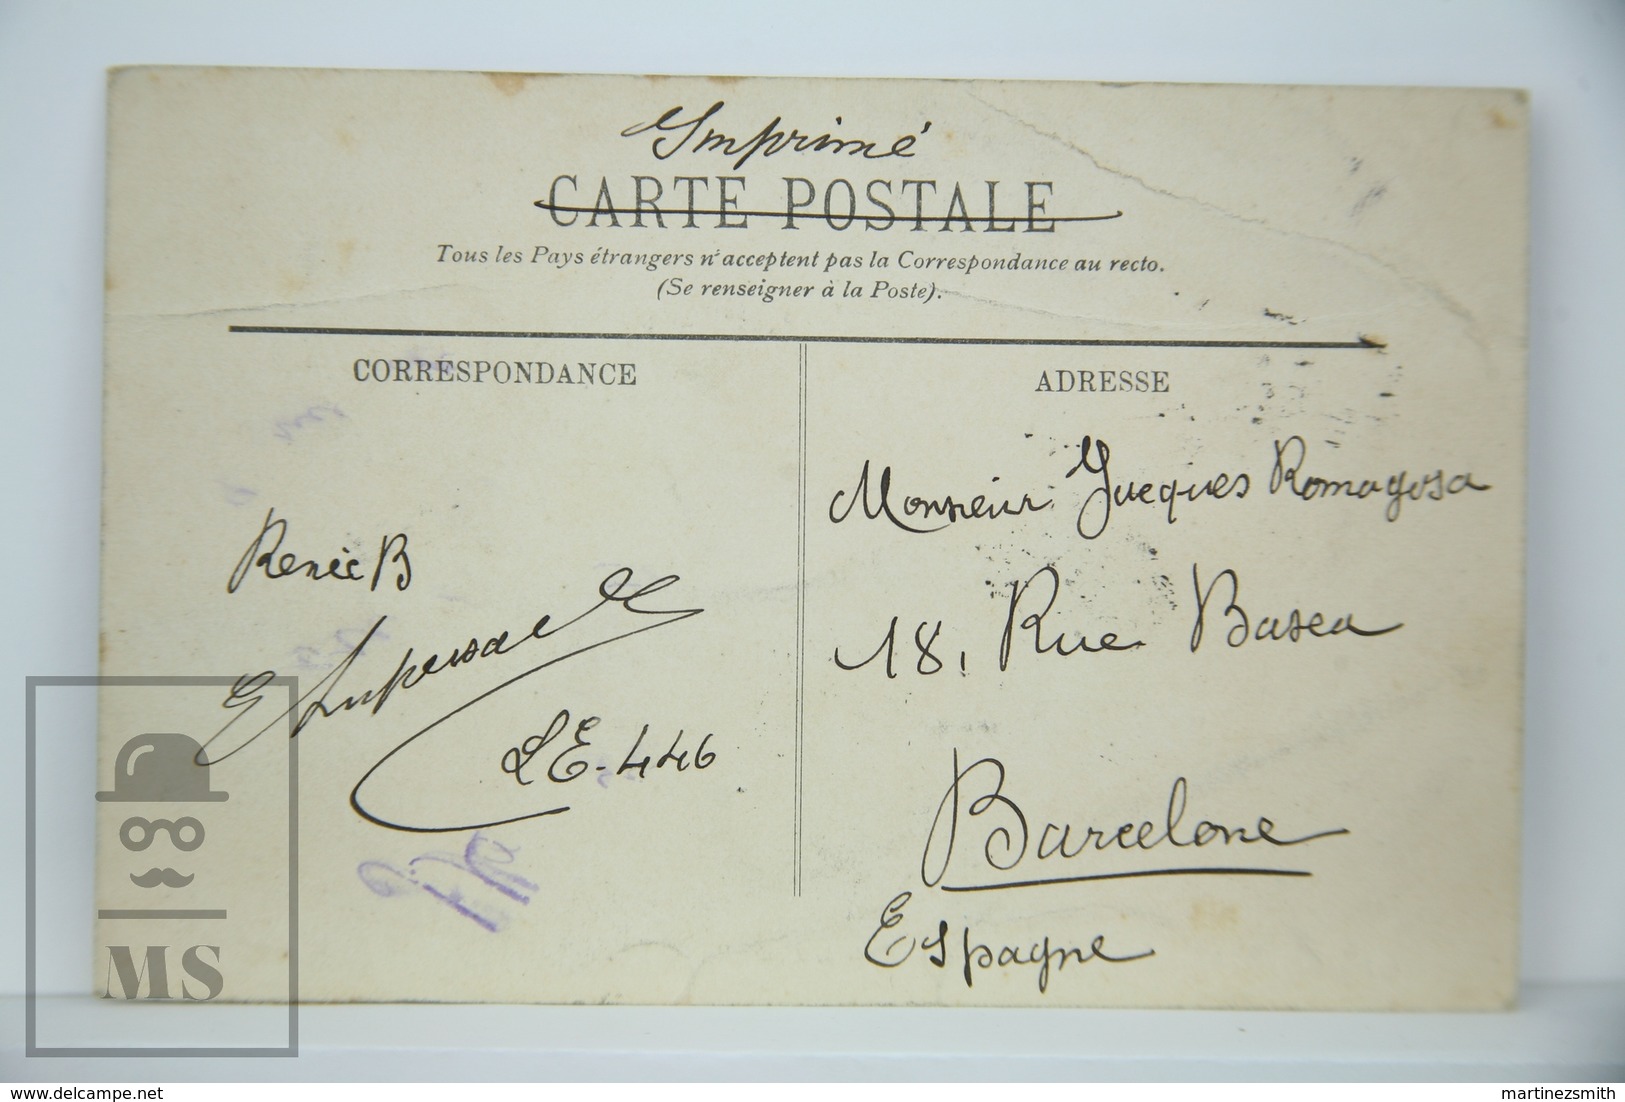 Imprimé
CARTE POSTALE
Tous les Pays étrangers n'acceptent pas la Correspondance au recto.
(Se renseigner à la Poste).
CORRESPONDANCE
Renée B
LE-446
ADRESSE
Monsieur Jacques Romagosa
18, Rue Basea
Barcelone
Espagne
MS
delcampe.net
martinezsmith